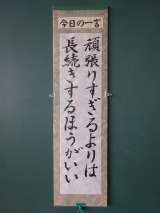 今日の一言
頑張りすぎるよりは
長続きするほうがいい